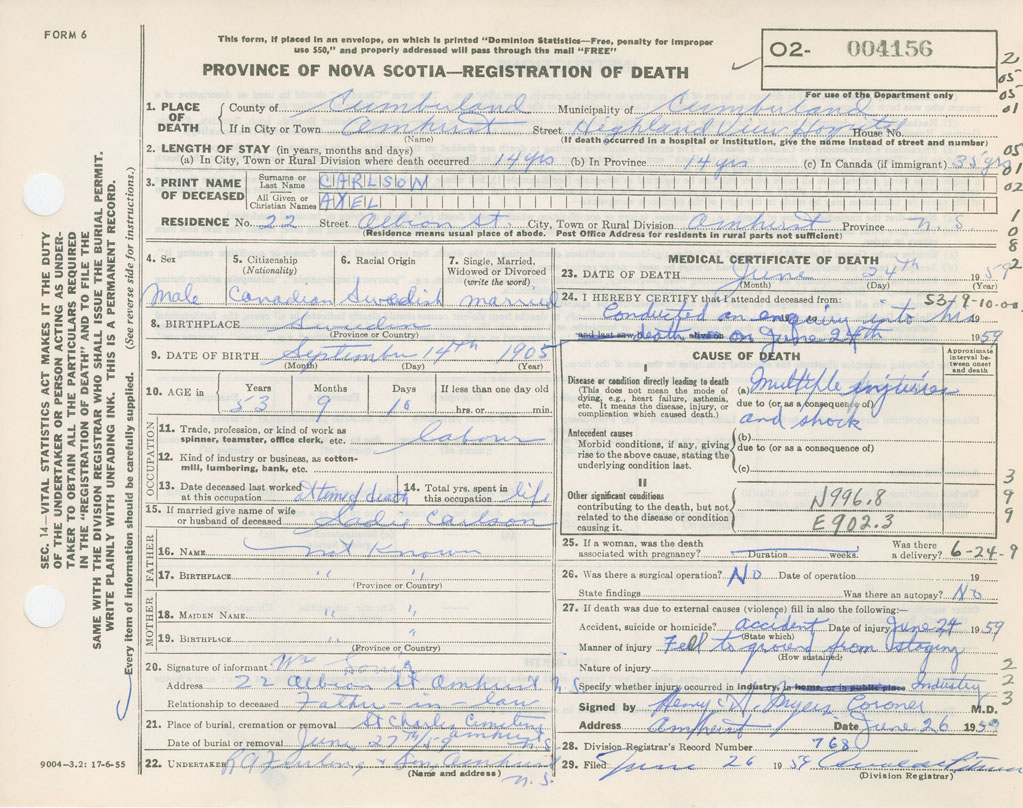 FORM 6
This form, if placed in an envelope, on which is printed "Dominion Statistics—Free, penalty for improper
use $50," and properly addressed will pass through the mail "FREE"
PROVINCE OF NOVA SCOTIA—REGISTRATION OF DEATH
O2- 004156
For use of the Department only
2
05
05
01
05
01
02
1
0
8
2
SEC. 14—VITAL STATISTICS ACT MAKES IT THE DUTY
OF THE UNDERTAKER OR PERSON ACTING AS UNDER-
TAKER TO OBTAIN ALL THE PARTICULARS REQUIRED
IN THE "REGISTRATION OF DEATH" AND TO FILE THE
SAME WITH THE DIVISION REGISTRAR WHO SHALL ISSUE THE BURIAL PERMIT.
WRITE PLAINLY WITH UNFADING INK. THIS IS A PERMANENT RECORD.
Every item of information should be carefully supplied. (See reverse side for instructions.)
1. PLACE OF DEATH
County of Cumberland Municipality of Cumberland
If in City or Town Amherst Street Highland View Hospital House No.
(Name) (If death occurred in a hospital or institution, give the name instead of street and number)
2. LENGTH OF STAY (in years, months and days)
(a) In City, Town or Rural Division where death occurred 14 yrs (b) In Province 14 yrs (c) In Canada (if immigrant) 35 yrs
3. PRINT NAME OF DECEASED
Surname or Last Name CARLSON
All Given or Christian Names AXEL
RESIDENCE No. 22 Street Albion St. City, Town or Rural Division Amherst Province N. S
(Residence means usual place of abode. Post Office Address for residents in rural parts not sufficient)
4. Sex
Male
5. Citizenship
(Nationality)
Canadian
6. Racial Origin
Swedish
7. Single, Married, Widowed or Divorced
(write the word)
married
8. BIRTHPLACE Sweden
(Province or Country)
9. DATE OF BIRTH September 14th 1905
(Month) (Day) (Year)
10. AGE in Years Months Days If less than one day old
53 9 10 hrs. or min.
OCCUPATION
11. Trade, profession, or kind of work as
spinner, teamster, office clerk, etc. labour
12. Kind of industry or business, as cotton-
mill, lumbering, bank, etc.
13. Date deceased last worked
at this occupation at time of death
14. Total yrs. spent in
this occupation life
15. If married give name of wife
or husband of deceased Sadie Carlson
FATHER
16. NAME not Known
17. BIRTHPLACE " "
(Province or Country)
MOTHER
18. MAIDEN NAME " "
19. BIRTHPLACE " "
(Province or Country)
20. Signature of informant Wm
Address 22 Albion St Amherst N S
Relationship to deceased Father-in-law
21. Place of burial, cremation or removal St Charles Cemetery
Amherst N S
Date of burial or removal June 27th/59
22. UNDERTAKER & Son Amherst
(Name and address) N. S.
9004—3.2: 17-6-55
MEDICAL CERTIFICATE OF DEATH
23. DATE OF DEATH June 24th 1959
(Month) (Day) (Year)
24. I HEREBY CERTIFY that I attended deceased from: 53-9-10-00
Conducted an enquiry into his
and last saw death alive on on June 24th 1959
CAUSE OF DEATH
Approximate interval between onset and death
I
Disease or condition directly leading to death
(This does not mean the mode of
dying, e.g., heart failure, asthenia,
etc. It means the disease, injury, or
complication which caused death.)
(a) Multiple injuries
due to (or as a consequence of)
and shock
Antecedent causes
Morbid conditions, if any, giving
rise to the above cause, stating the
underlying condition last.
(b)
due to (or as a consequence of)
(c)
II
Other significant conditions
contributing to the death, but not
related to the disease or condition
causing it.
N996.8
E902.3
3
9
9
25. If a woman, was the death
associated with pregnancy? Duration weeks. Was there
a delivery? 6-24-9
26. Was there a surgical operation? No Date of operation 19
State findings Was there an autopsy? No
27. If death was due to external causes (violence) fill in also the following:—
Accident, suicide or homicide? accident Date of injury June 24 1959
(State which)
Manner of injury Fell to ground from staging
(How sustained)
Nature of injury
Specify whether injury occurred in industry, in home, or in public place Industry
2
2
3
Signed by Henry W. Myers Coroner M.D.
Address Amherst Date June 26 1959
28. Division Registrar's Record Number 768
29. Filed June 26 1959
(Division Registrar)